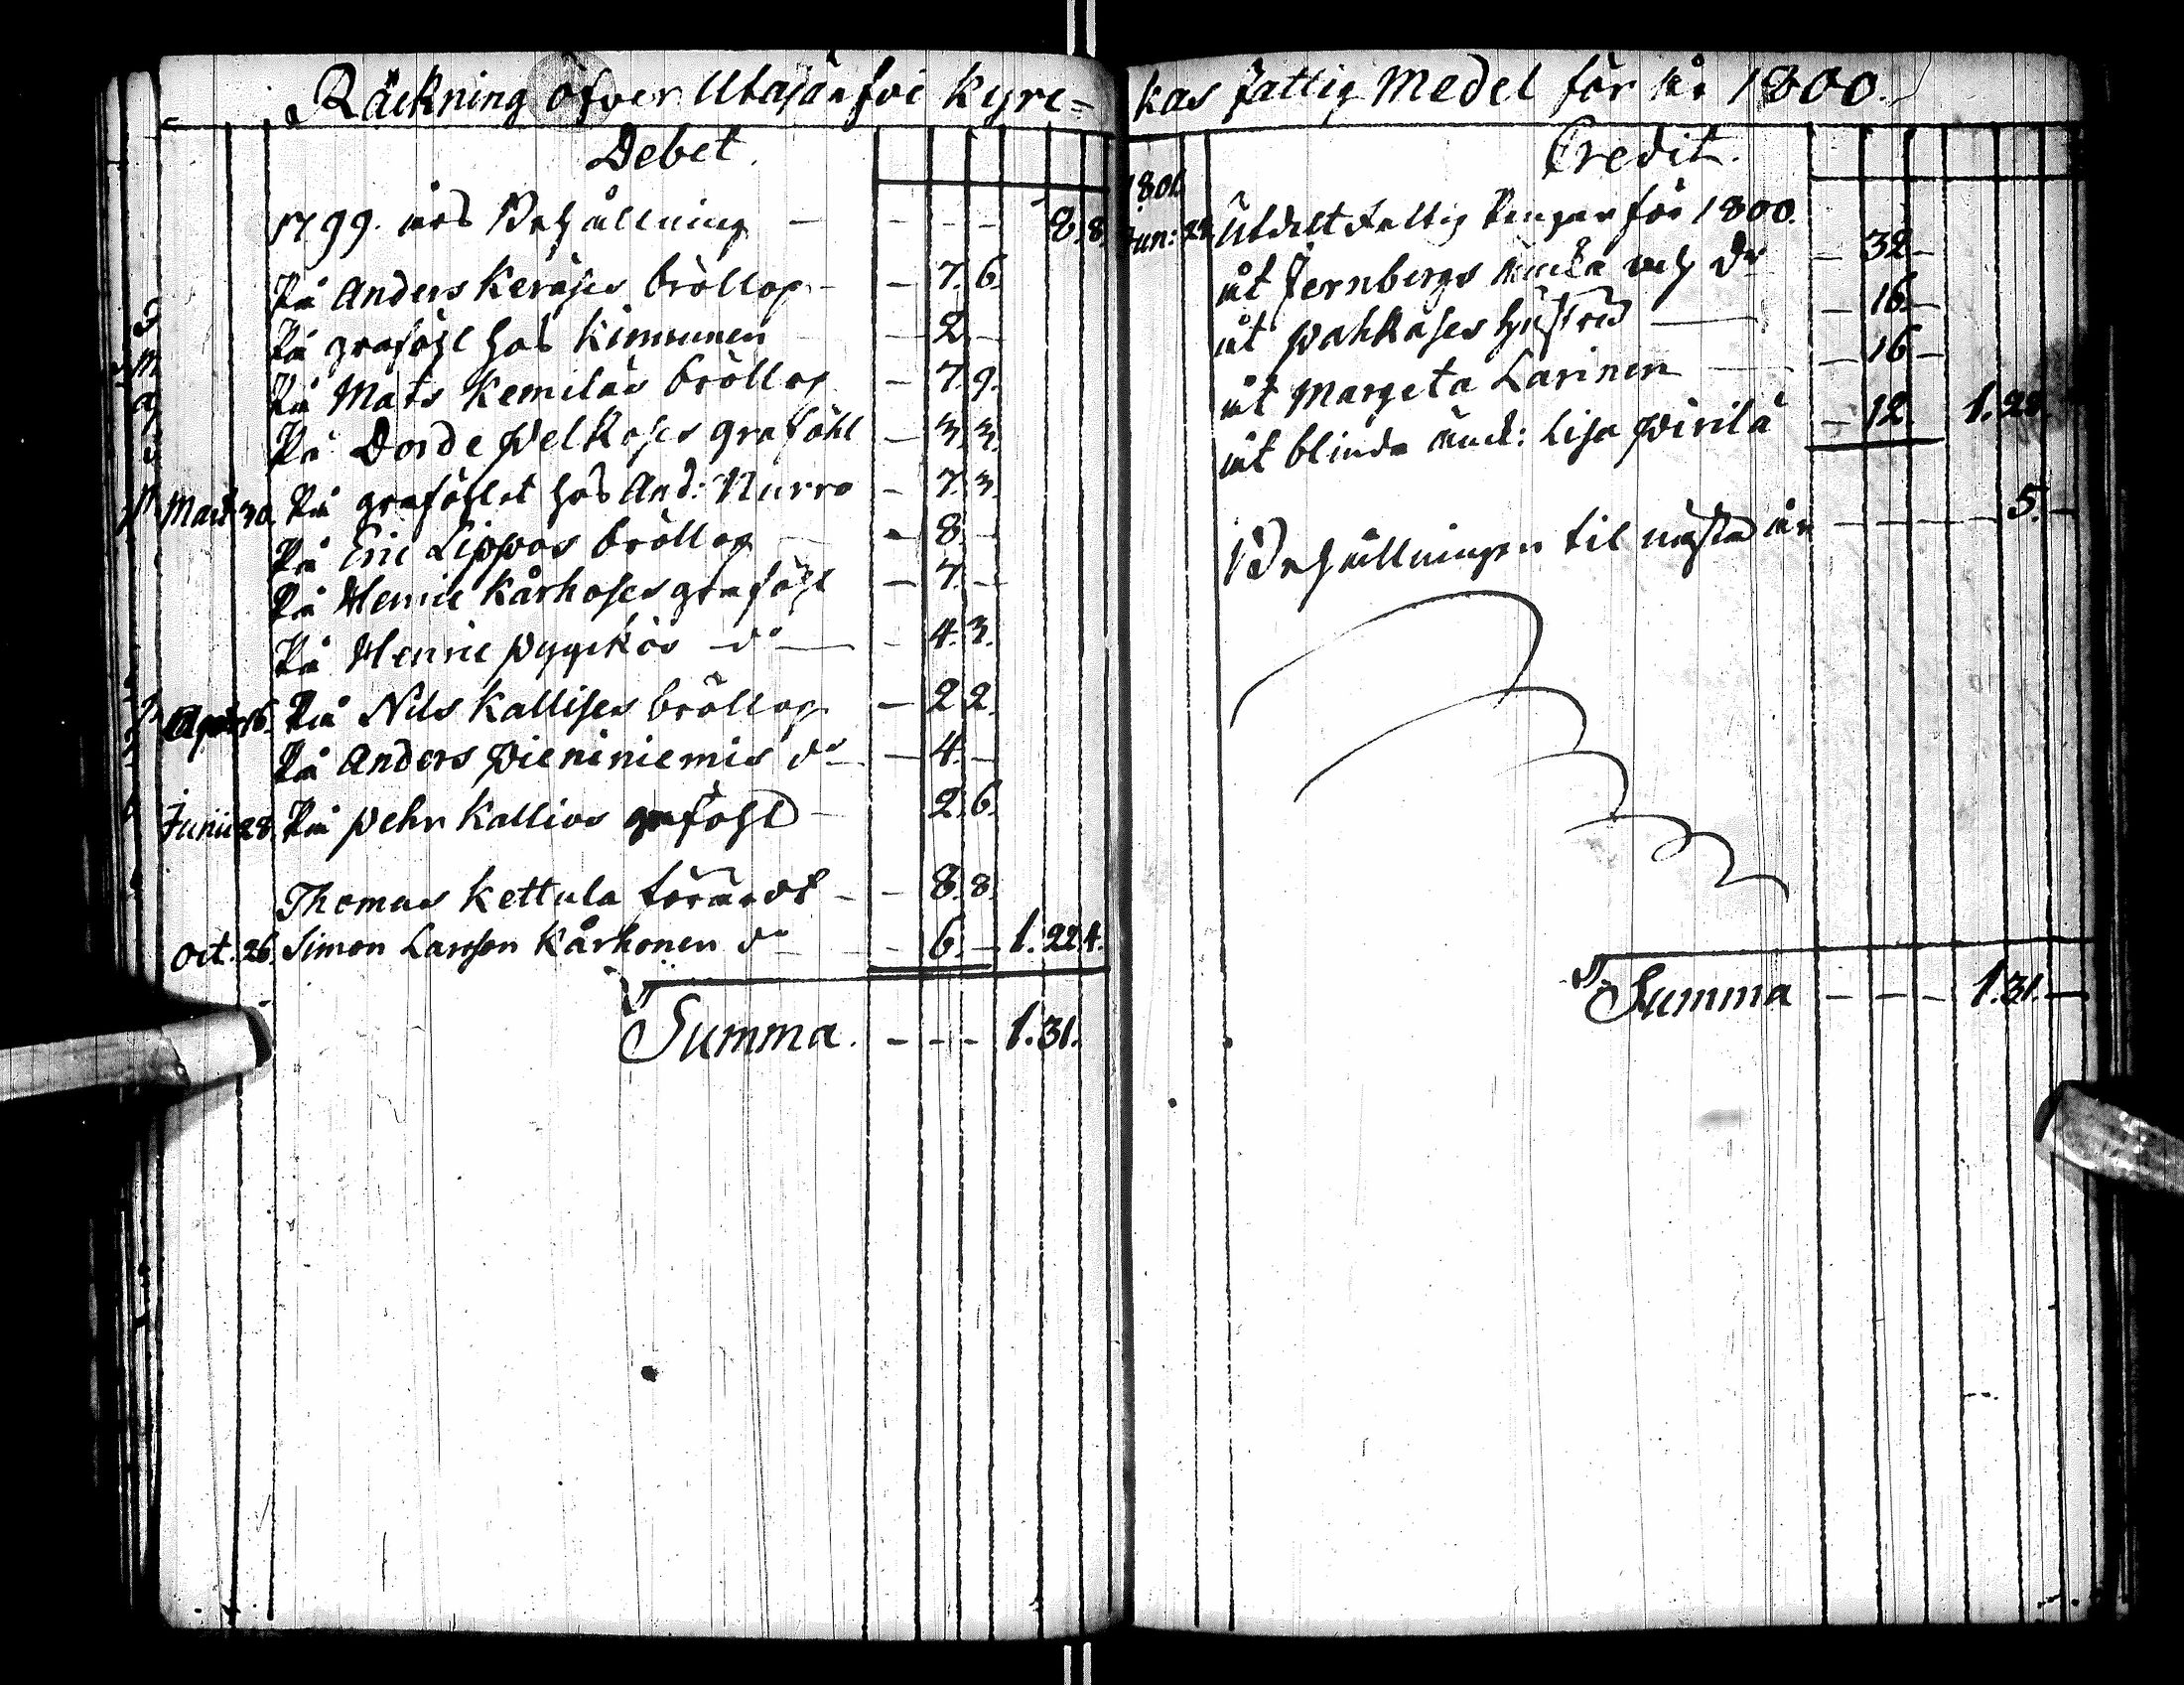 Räckning öfver Utajärfvi Kyrc=
Debet.
1799. års Behållning - - - - 8. 8.
På Anders Keräses bröllop - - 7. 6.
På graföhl hos Kinnunen - 2. -
På Mats Kemiläs bröllop - 7. 9.
På Dorde Welkoses graföhl - 3. 3.
Mart. 30. På graföhlet hos And: Nurro - 7. 3.
På Eric Lippos bröllop - 8. -
På Henric Kårhoses graföhl - 7. -
På Henric Pyyckös do - 4. 3.
Apr. 16. På Nils Kallises bröllop - 2 2.
På Anders Pieniniemis do - 4. -
Junii 28. På Pehr Kallios graföhl - 2. 6.
Thomas Kettula förärdt - - 8. 8.
Oct. 26. Simon Larsson Kårhonen do - 6. - 1. 22. 4.
Summa. - - - 1. 31.
kas fattig Medel för år 1800.
Credit.
1801.
Jun: 28. Utdelt fattig Pengar för 1800.
åt Jernbergs Encka och Dr - 32 -
åt Pahkases hustru - 16 -
åt Margeta Larinen - 16 -
åt blinda Enck: Lisa Pirilä - 12. 1. 28.
Behållningen til nästa år - - - - 5. -
Summa - - - 1. 31. -